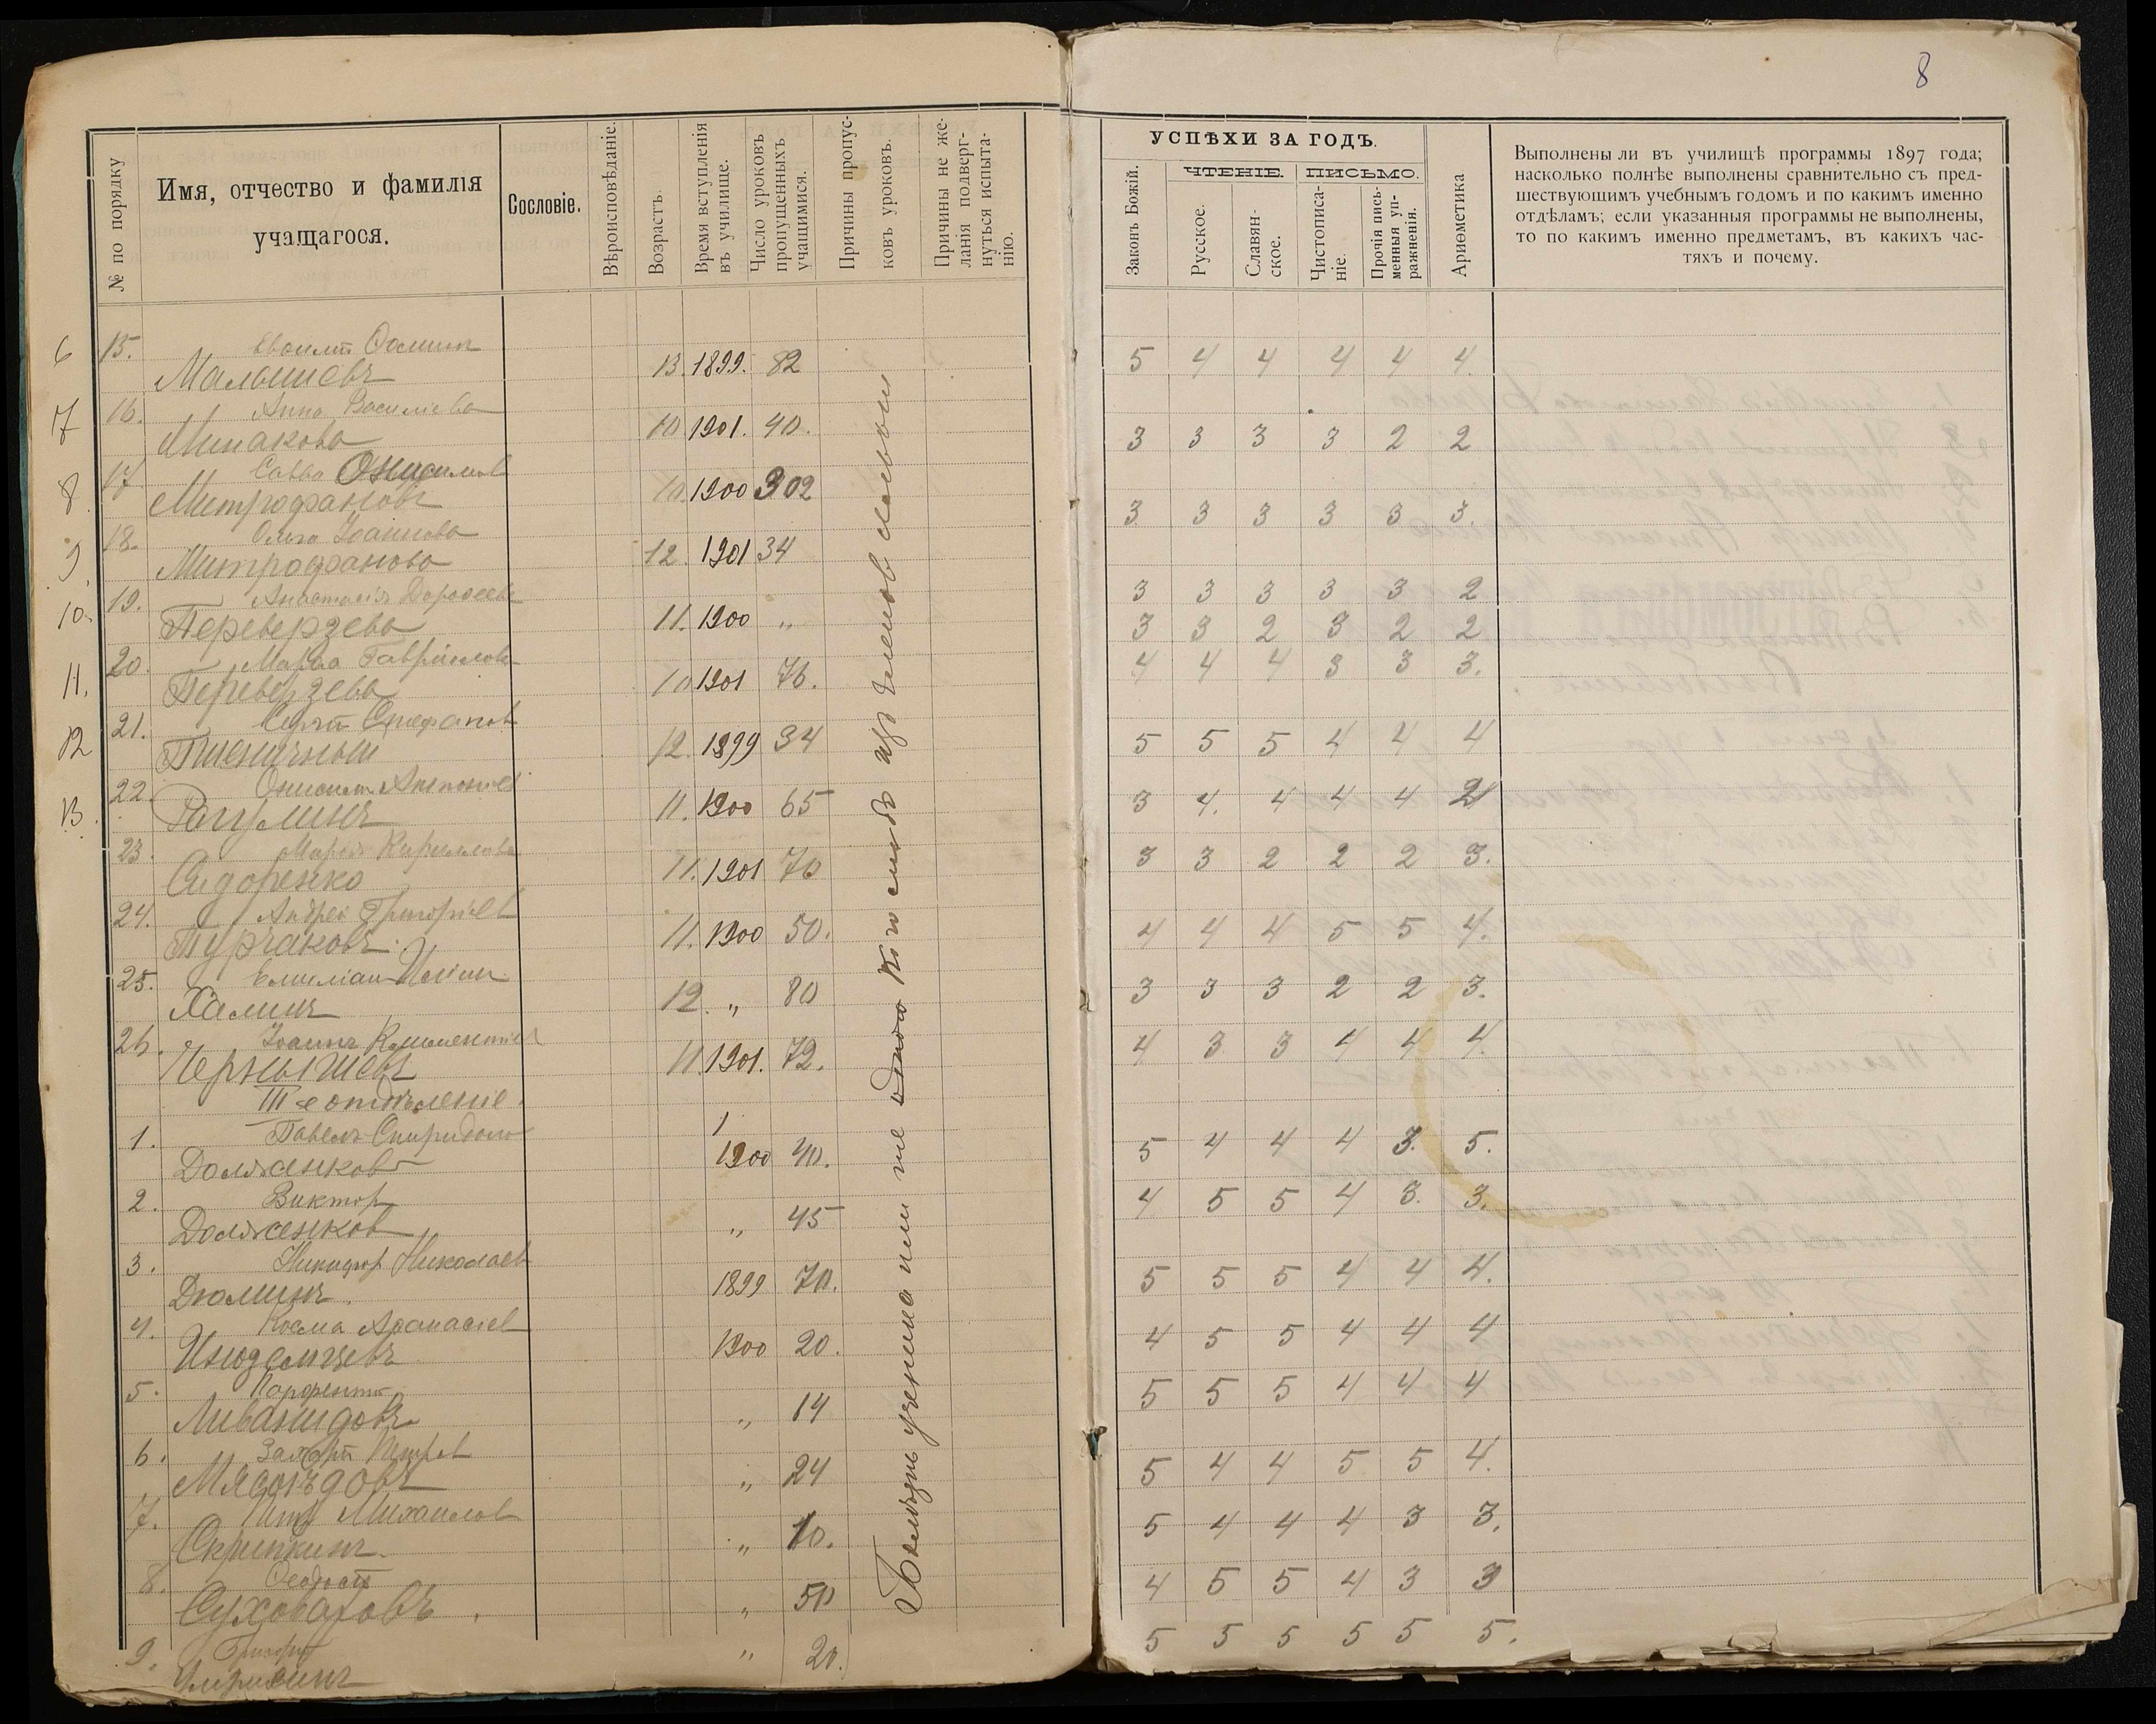 8
№ по порядку
Имя, отчество и фамилія
учащагося.
Сословіе.
Вѣроисповѣданіе.
Возрастъ.
Время вступленія
въ училище.
Число уроковъ
пропущенныхъ
учащимися.
Причины пропус-
ковъ уроковъ.
Причины не же-
ланія подверг-
нуться испыта-
нію.
УСПѢХИ ЗА ГОДЪ.
Законъ Божій.
ЧТЕНІЕ.
Русское.
Славян-
ское.
ПИСЬМО.
Чистописа-
ніе.
Прочія пись-
менныя уп-
ражненія.
Ариѳметика
Выполнены ли въ училищѣ программы 1897 года;
насколько полнѣе выполнены сравнительно съ пред-
шествующимъ учебнымъ годомъ и по какимъ именно
отдѣламъ; если указанныя программы не выполнены,
то по какимъ именно предметамъ, въ какихъ час-
тяхъ и почему.
6 15.
Малышевъ 13. 1899. 82 5 4 4 4 4 4.
17 16. Анна Василіева
Минакова 10 1901. 40. 3 3 3 3 2 2
8 17. Савва Онисимов
Митрофановъ 10. 1900 302 3 3 3 3 3 3.
9. 18. Ольга Іоаннова
Митрофанова 12. 1901 34 3 3 3 3 3 2
10. 19. Анастасія Дороѳеева
Переверзева 11. 1900 „ 3 3 2 3 2 2
11. 20. Марѳа Гавріилова
Переверзева 10 1901 76. 4 4 4 3 3 3.
12 21. Сергѣй Стефанов
Пшеничный 12. 1899 34 5 5 5 4 4 4
13. 22. Онисим Антоніев
Рагулинъ 11. 1900 65 3 4. 4 4 4 2
23. Марія Кириллова
Сидоренко 11. 1901 70 3 3 2 2 2 3.
24. Андрей Григоріев
Турчаковъ. 11. 1900 50. 4 4 4 5 5 4.
25. Емиліан Иліин
Халинъ 12. „ 80 3 3 3 2 2 3.
26. Іоаннъ Климентіев
Чернышевъ 11. 1901. 72. 4 3 3 4 4 4.
III-е отдѣленіе.
1. Павелъ Спиридонов
Долженков 1900 40. 5 4 4 4 3. 5.
2. Виктор
Долженков „ 45 4 5 5 4 3. 3.
3. Никифор Николаев
Дюминъ. 1899 70. 5 5 5 4 4 4.
4. Косма Аѳанасіев
1900 20. 4 5 5 4 4 4
5. Парфентій
Ливанидовъ „ 14 5 5 5 4 4 4
6. Захарій Петров
Мясоѣдовъ „ 24 5 4 4 5 5 4.
7. Михаилов
Скрипкинъ. „ 10. 5 4 4 4 3 3.
8. Ѳеодосій
„ 50 4 5 5 4 3 3
9. Григорій
„ 20. 5 5 5 5 5 5.
Болѣзнь ученика или не одного кого либо изъ членов семьи